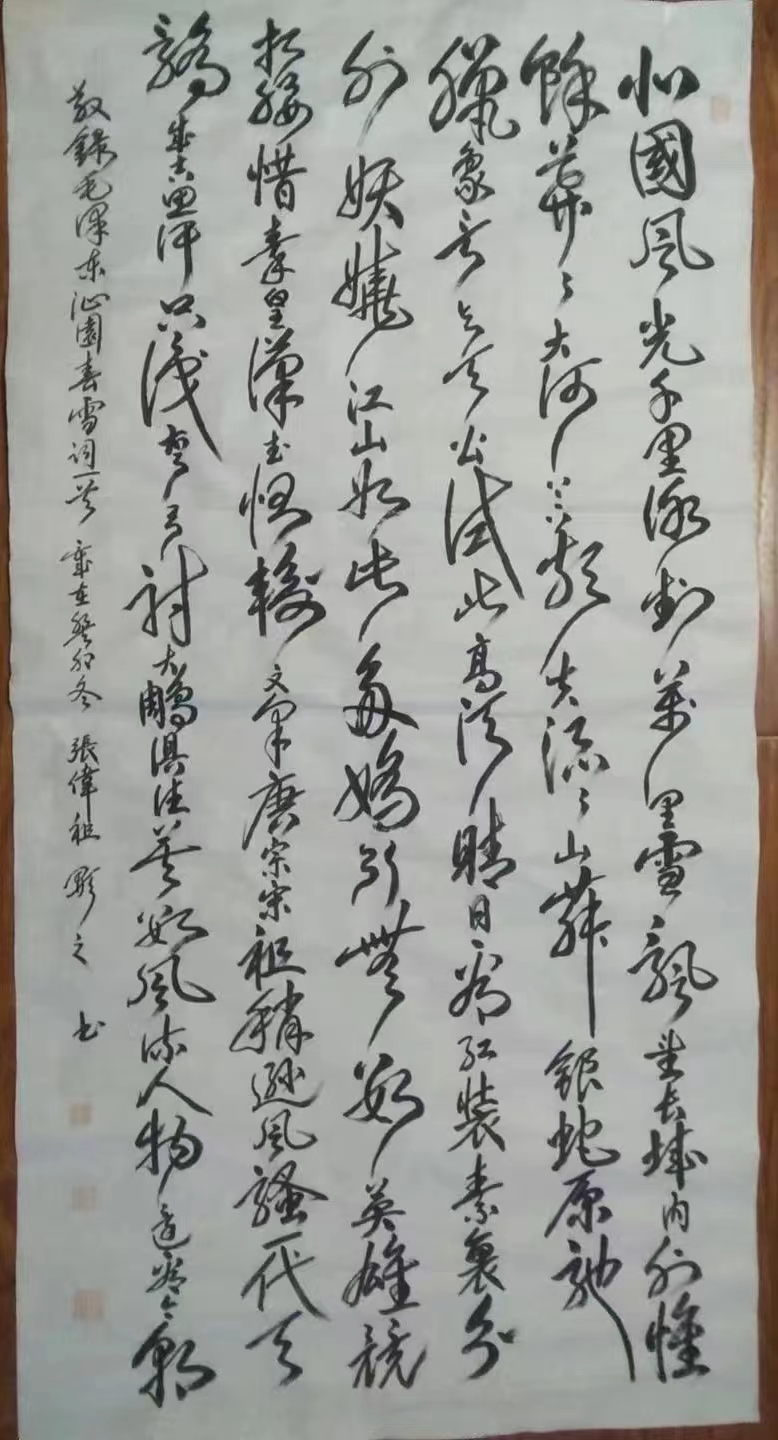 北國風光千里冰封萬里雪飄望長城内外惟
餘莽々大河上下頓失滔々山舞銀蛇原馳
臘象欲与天公試比高須晴日看紅裝素裹分
外妖嬈江山如此多嬌引無數英雄競
折腰惜秦皇漢武略輸文采唐宗宋祖稍遜風騷一代天
驕成吉思汗只識彎弓射大鵰俱往矣數風流人物還看今朝
敬錄毛澤東沁園春雪詞一首 歲在癸卯冬 張偉祖 之 书